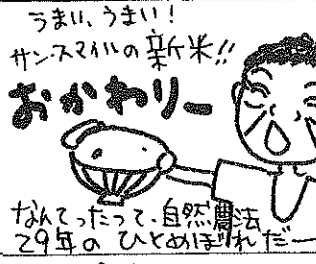 うまい、うまい！
サンスマイルの新米!!
おかわりー
なんてったって、自然農法
29年のひとめぼれだー